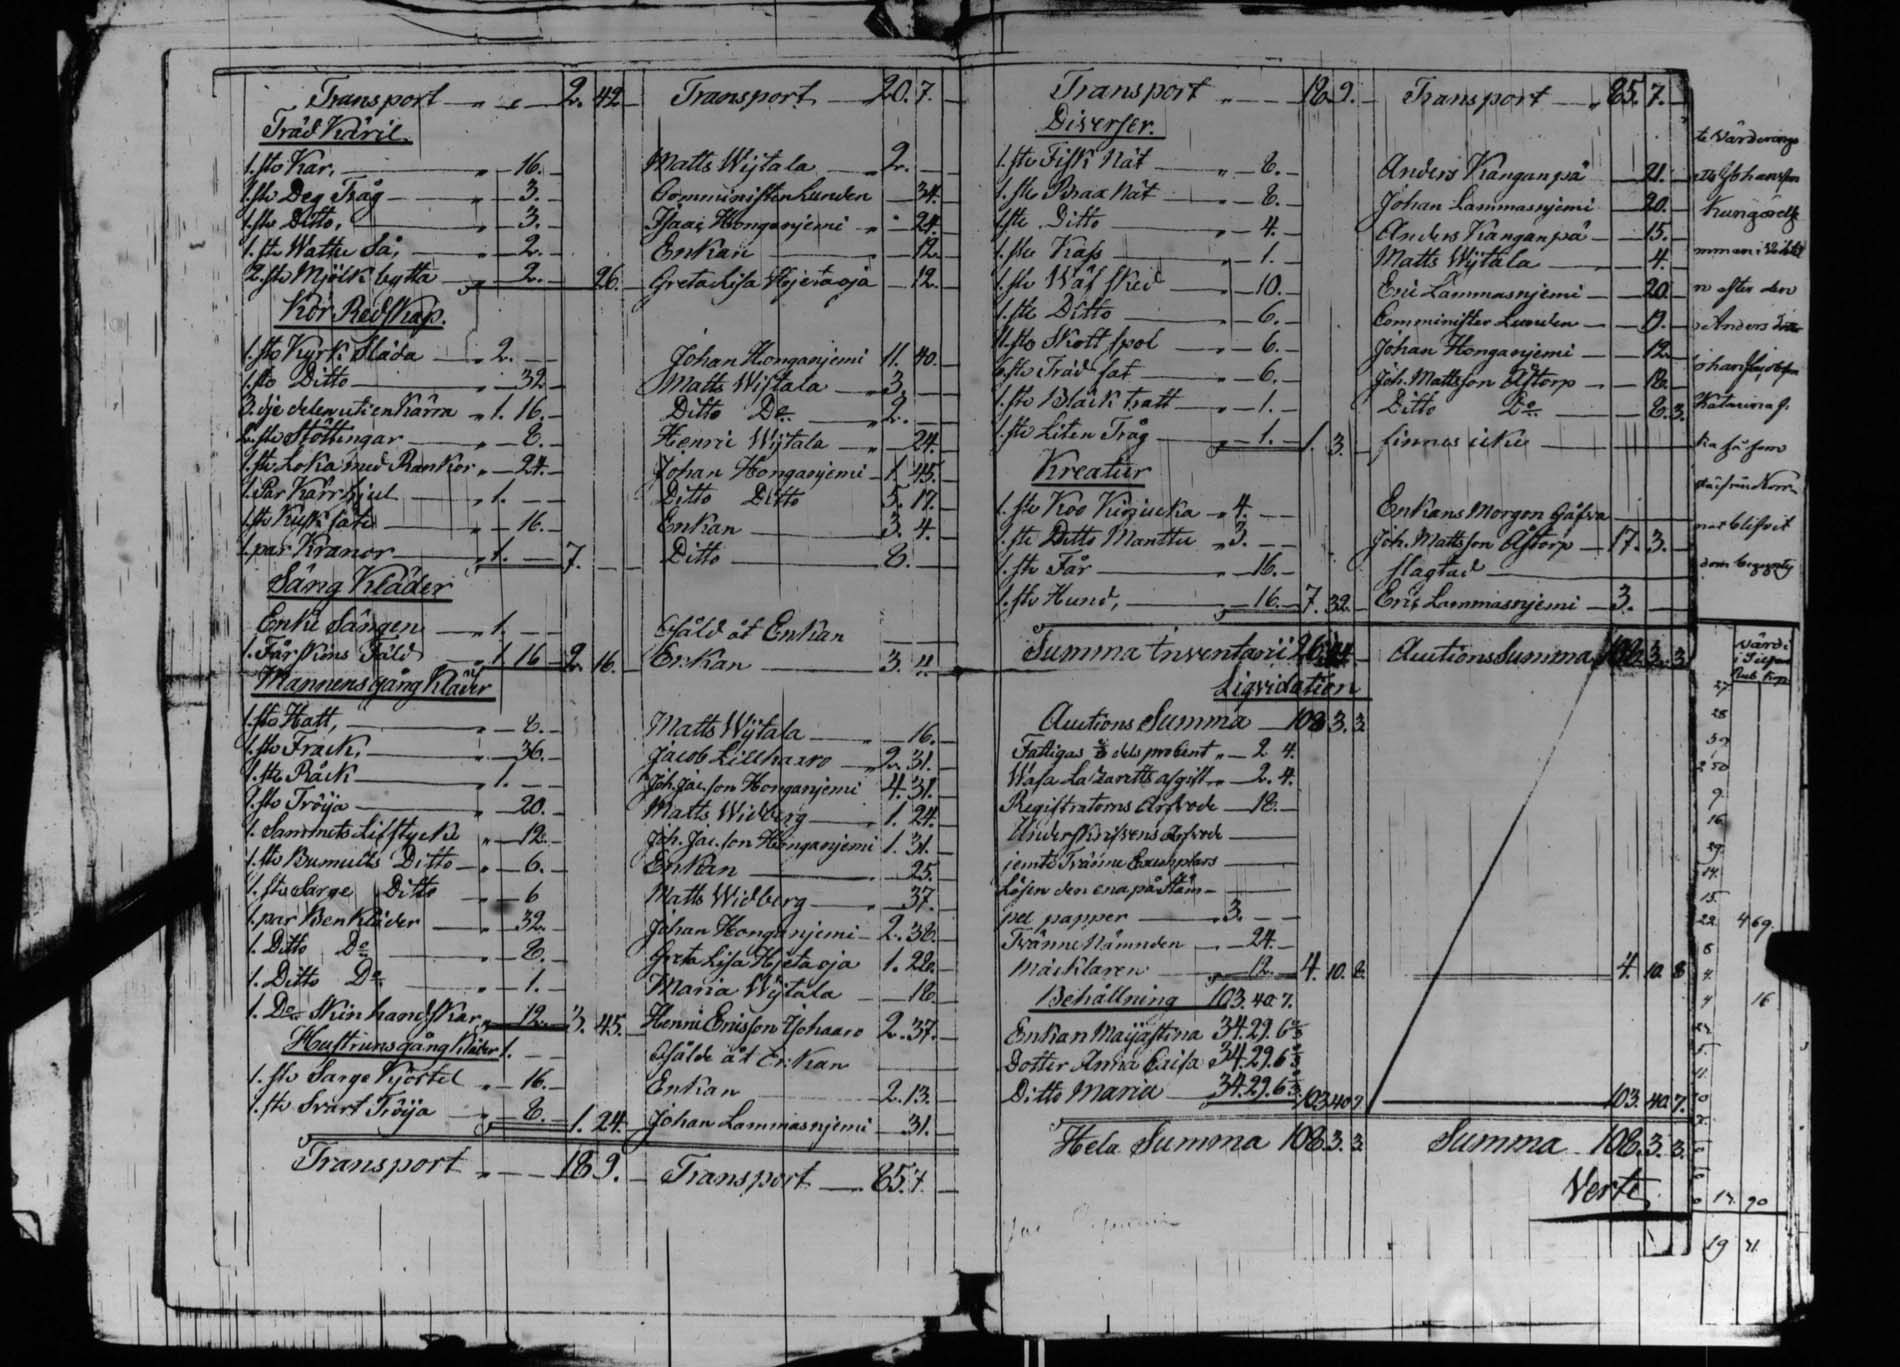 Transport 2. 42. Transport 20. 7.
Träd Käril.
1. st. Kar, 16. Matts Wijtala 2.
1. st. Deg Tråg 3. Comministern Lunden 34.
1. st. Ditto, 3. Isaac Honganjemi 24.
1. st. Wattu Så, 2. Enkan 12.
2. st. Mjölk bytta 2. 26. Greta Lisa Hjetaoja 12.
Kör Redskap.
1. st. Kyrk Släda 2. Johan Honganjemi 11. 40.
1. st. Ditto 32. Matts Wijtala 3.
3. dje delen uti en Kärra 1. 16. Ditto Do 2.
2. st. Stöttingar 8. Henric Wijtala 24.
1. st. Loka med Rankor 24. Johan Honganjemi 1. 45.
1. Par Kärrhjul 1. Ditto Ditto 5. 17.
1. st. Kusk säte 16. Enkan 3. 4.
1. par Kranor 1. 7. Ditto 8.
Säng Kläder
Enke Sängen 1. Såld åt Enkan
1. Får skins Fäld 1 16 2. 16. Enkan 3. 4.
Mannens gång Kläder
1. st. Hatt, 8. Matts Wijtala 16.
1. st. Frack, 36. Jacob Lillhaaro 2. 31.
1. st. Råck 1. Joh. Jac.son Honganjemi 4. 31.
1. st. Tröija 20. Matts Widberg 1. 24.
1. Sammets Lifstycke 12. Joh. Jac.son Honganjemi 1. 31.
1. st. Bumulls Ditto 6. Enkan 25.
1. st. Sarge Ditto 6 Matts Widberg 37.
1. par Benkläder 32. Johan Honganjemi 2. 38.
1. Ditto Do 8. Greta Lisa Hjetaoja 1. 28.
1. Ditto Do 1. Maria Wijtala 18.
1. Do Skinhandskar 12. 3. 45. Henric Ericsson Ijohaaro 2. 37.
Hustruns gång Kläder 1. Sålde åt Enkan
1. st. Sarge Kjortel 16. Enkan 2. 13.
1. st. Svart Tröija 8. 1. 24. Johan Lammasnjemi 31.
Transport 18 9. Transport 85. 7.
Transport 18 9. Transport 85. 7.
Diverser.
1. st. Fisk Nät 8. Anders Kanganpä 21.
1. st. Brax Nät 8. Johan Lammasnjemi 20.
1. st. Ditto 4. Anders Kanganpä 15.
1. st. Kass 1. Matts Wijtala 4.
1. st. Wäf sked 10. Eric Lammasnjemi 20.
1. st. Ditto 6. Comminister Lunden
st. Skottspol 6. Johan Honganjemi 12.
st. Träd fat 6. Joh. Mattsson Åstorp 18.
1. st. Bläck tratt 1. Ditto Do 8. 3.
1. st. Liten Tråg 1. 1. 3. finnes icke
Kreatur
1. st. Koo 4. Enkans Morgon Gåfva
1. st. Ditto Manttu 3. Joh. Mattsson Åstorp 17. 3.
1. st. Får 16. slagtad
1. st. Hund, 16. 7. 32. Eric Lammasnjemi 3.
Summa Inventarii 26. 44 Auctions Summa 108. 3. 3
Liqvidation
Auctions Summa 108 3. 3
Fattigas dels procent 2 4.
Wasa Lazaretts afgift 2. 4.
Registratorns Arfvode 18.
Underskrifvens Arfvode
jemte Tvänne Exemplars
Lösen den ena på Stäm-
pel papper 3.
Tvänne Nämnden 24.
Mäcklaren 12. 4. 10. 8. 4. 10. 8
Behållning 103. 40. 7.
Enkan Maijastina 34. 29. 6 2/3
Dotter Anna Caisa 34. 29. 6 2/3
Ditto Maria 34. 29. 6 2/3 103 40 7 103. 40. 7.
Hela Summa 108. 3. 3 Summa 108. 3. 3.
Verte
Kungörelse
n efter den
Anders
Katarina
Värde
4 69.
16
17. 90
19 71.